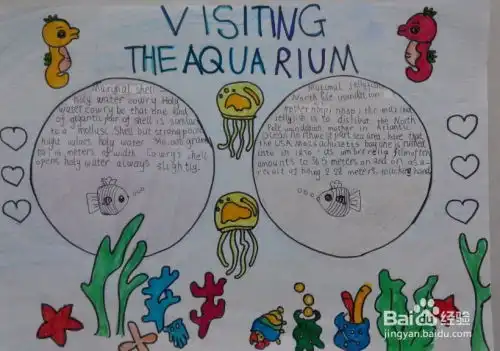 VISITING
THE AQUARIUM
Marginal shell
holy water cowry. Holy
water cowry be that the kind
of gigantic fear of shell is similar
to a mollusc. Shell but strong
hight valves holy water
meters of width. Cowry's shell
opens holy water always slightly.
Maximal jellyfish
North
the maximal
jellyfish is to distribut the North
Pole mother in Atlantic
Ocean sea area, have that
the USA Massachusetts bay one is rushed
into in 1870. as umbrella film often
amounts to 36.5 meters on and on as a
result of being 2.28 meters, touching hand.
Baidu 经验
jingyan.baidu.com